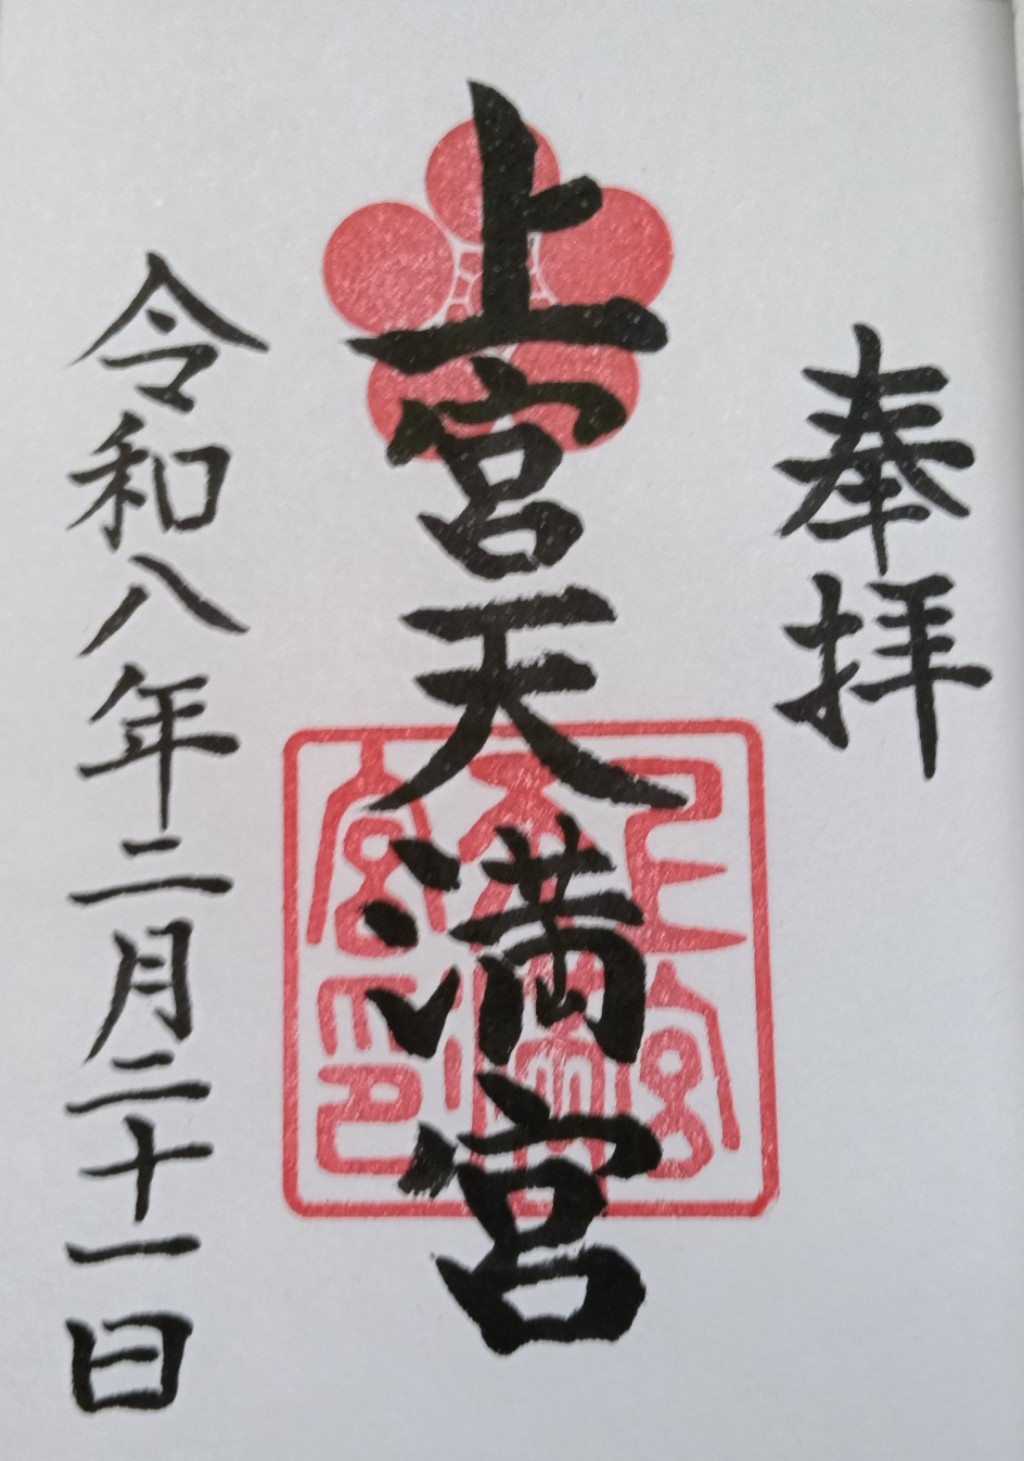 奉拝
上宮天満宮
上宮
天満
宮印
令和八年二月二十一日